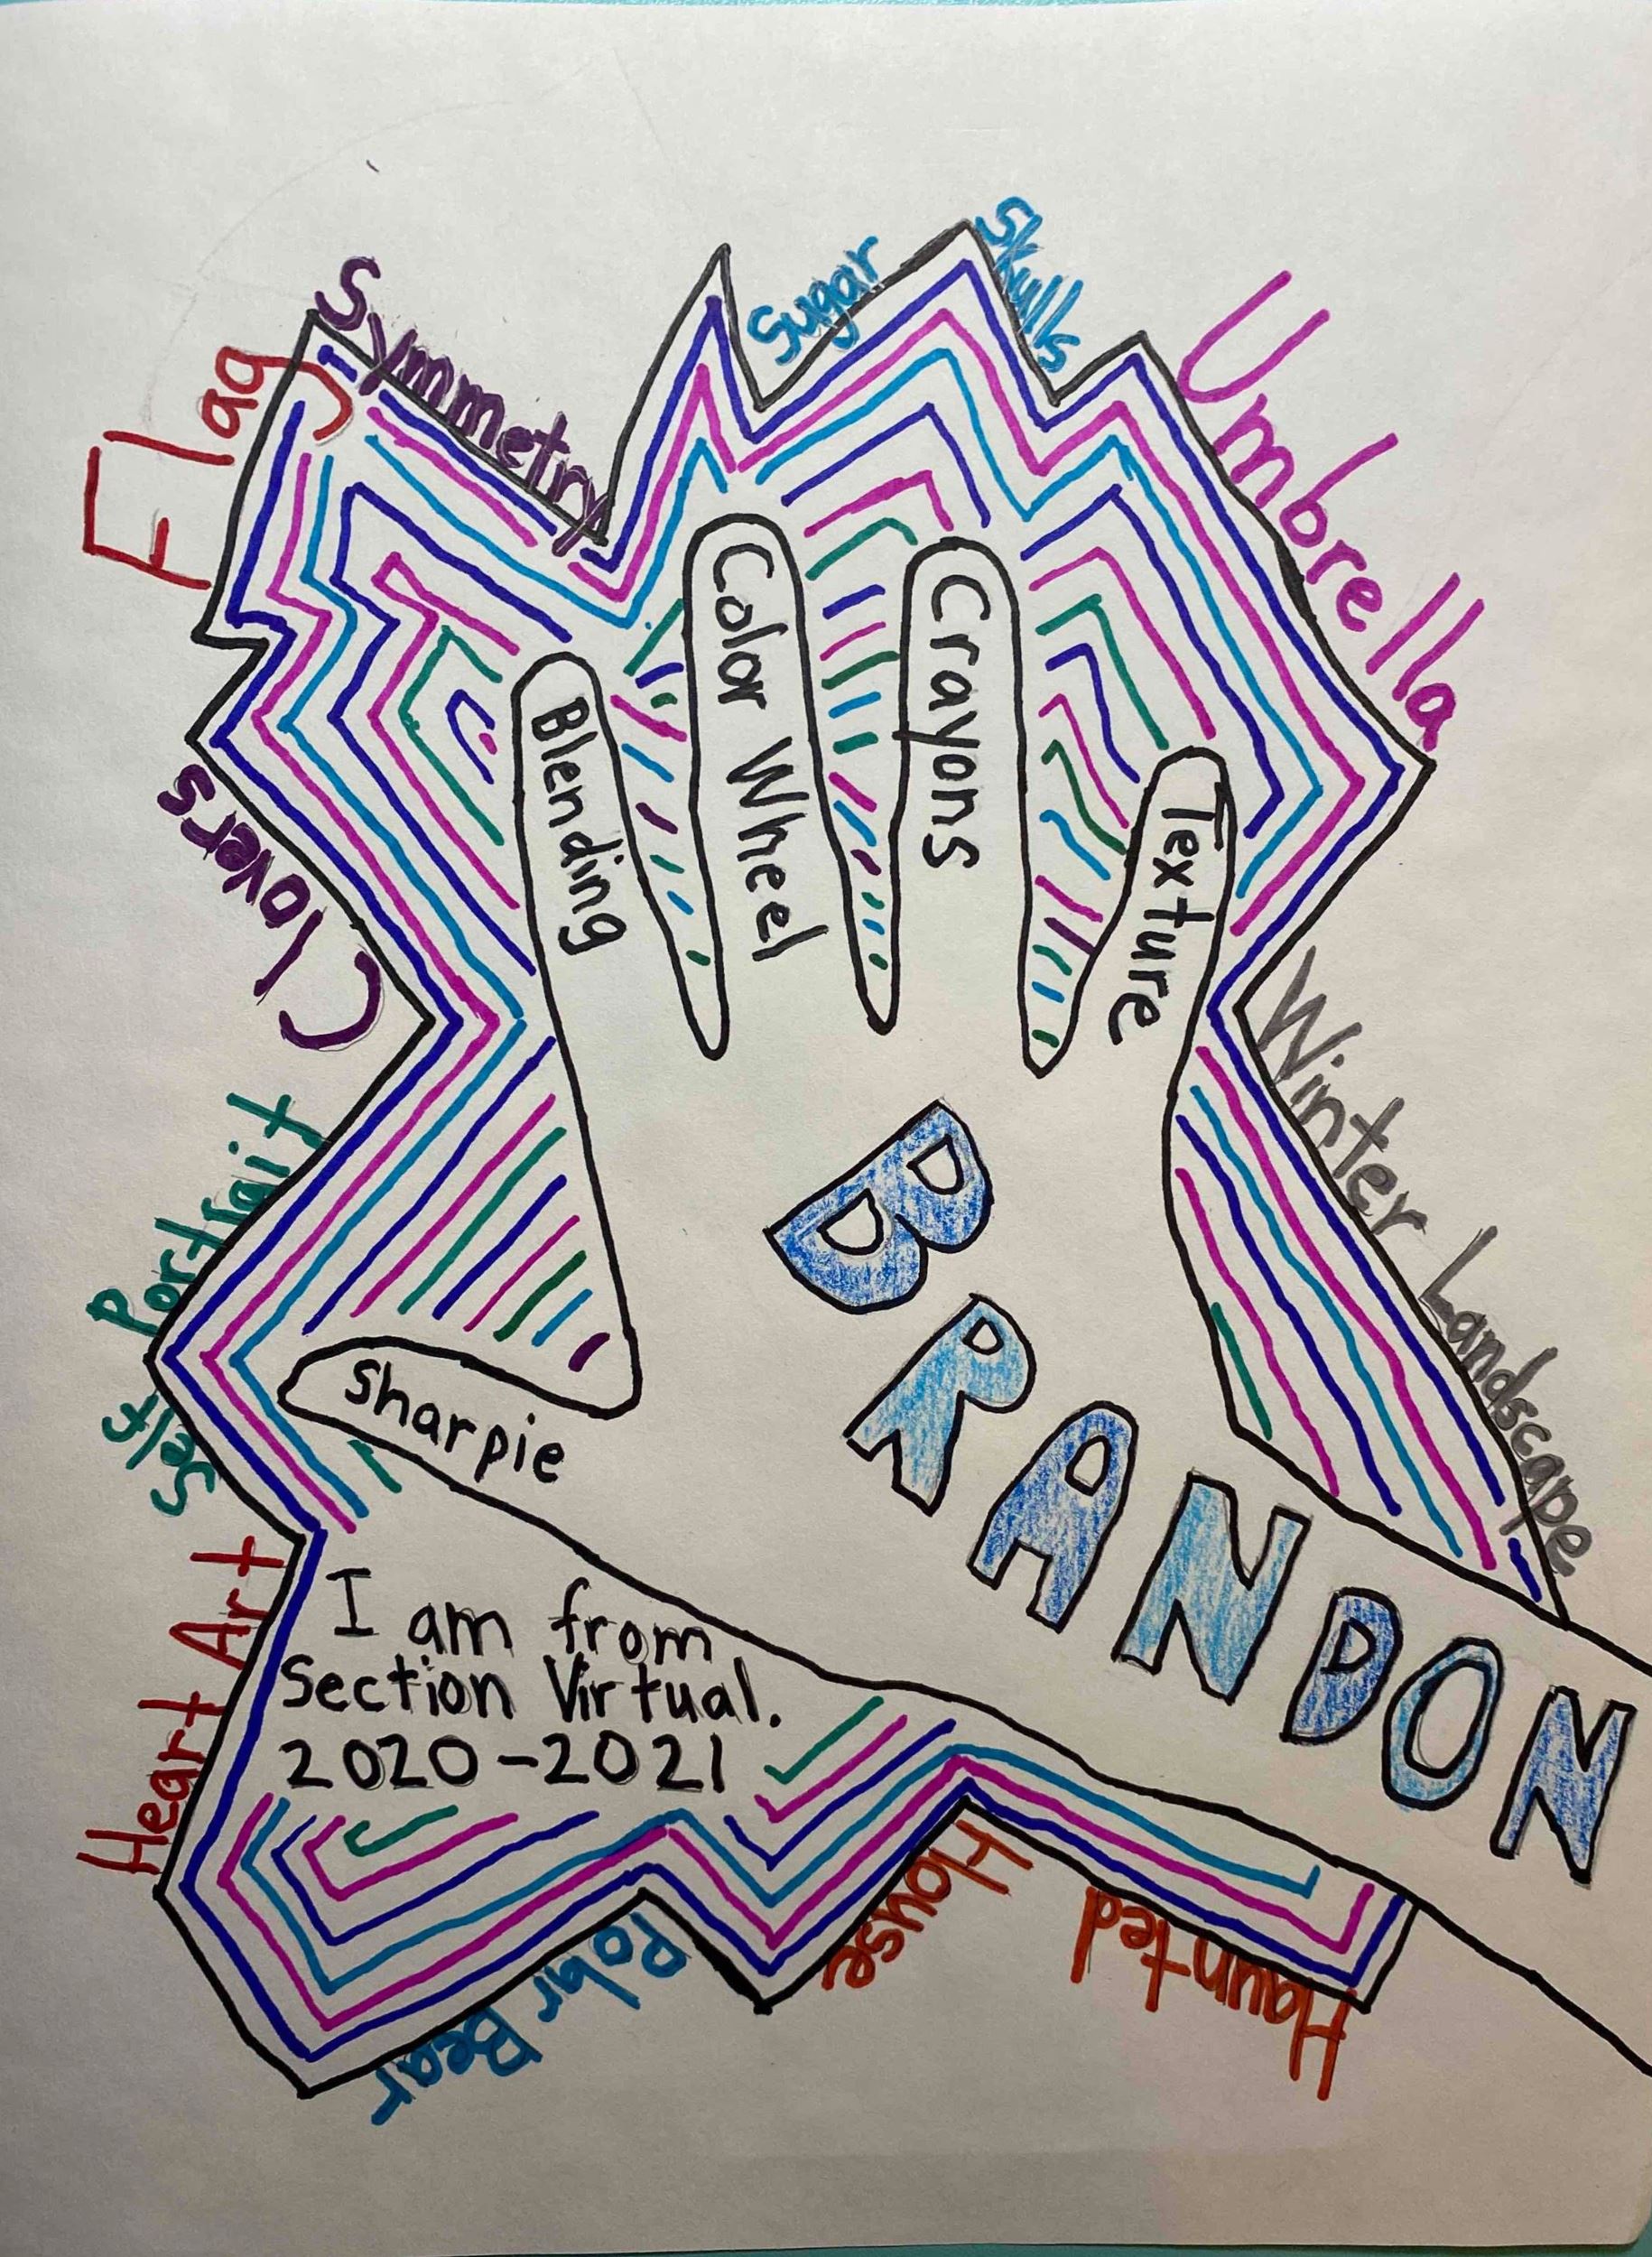 Flag
Symmetry
Sugar
Skulls
Umbrella
Winter Landscape
Clovers
Self Portrait
Heart Art
Polar Bear
Haunted
House
Blending
Color Wheel
Crayons
Texture
Sharpie
BRANDON
I am from
Section Virtual.
2020-2021